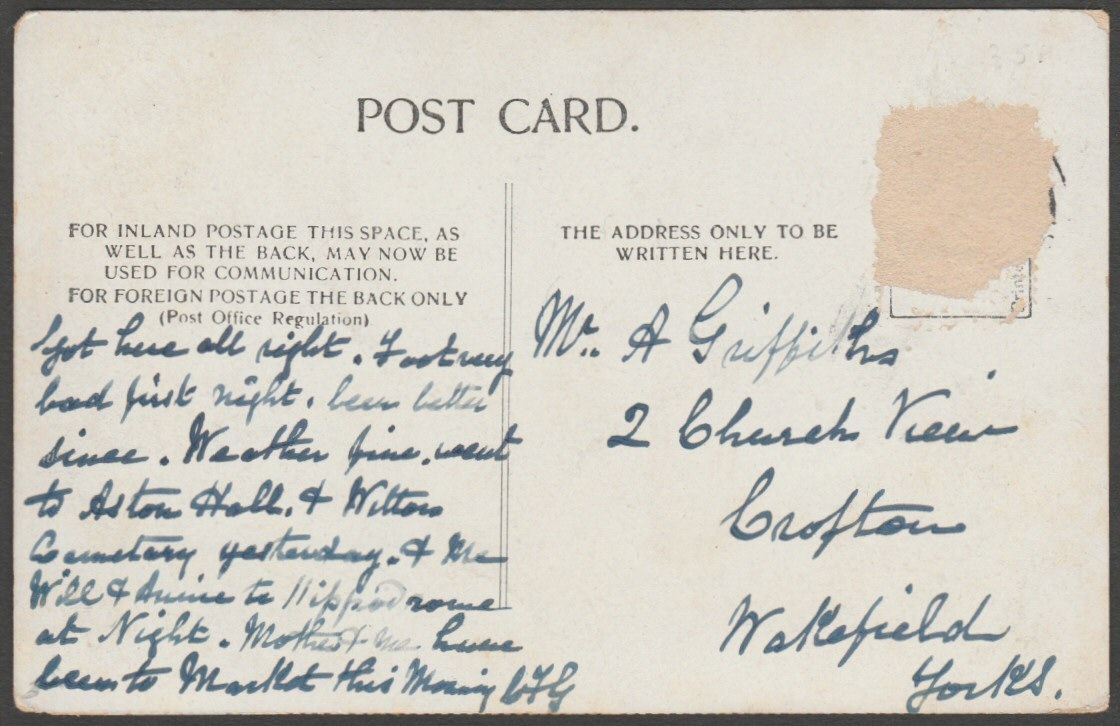 POST CARD.
FOR INLAND POSTAGE THIS SPACE, AS
WELL AS THE BACK, MAY NOW BE
USED FOR COMMUNICATION.
FOR FOREIGN POSTAGE THE BACK ONLY
(Post Office Regulation)
Got here all right. Foot very
bad first night. been better
since. Weather fine. went
to Aston Hall. & Witton
Cemetary yesterday. & Me
Will & Annie to Hippodrome
at Night. Mother & me have
been to Market this Morning
THE ADDRESS ONLY TO BE
WRITTEN HERE.
Mr. A Griffiths
2 Church View
Crofton
Wakefield
Yorks.